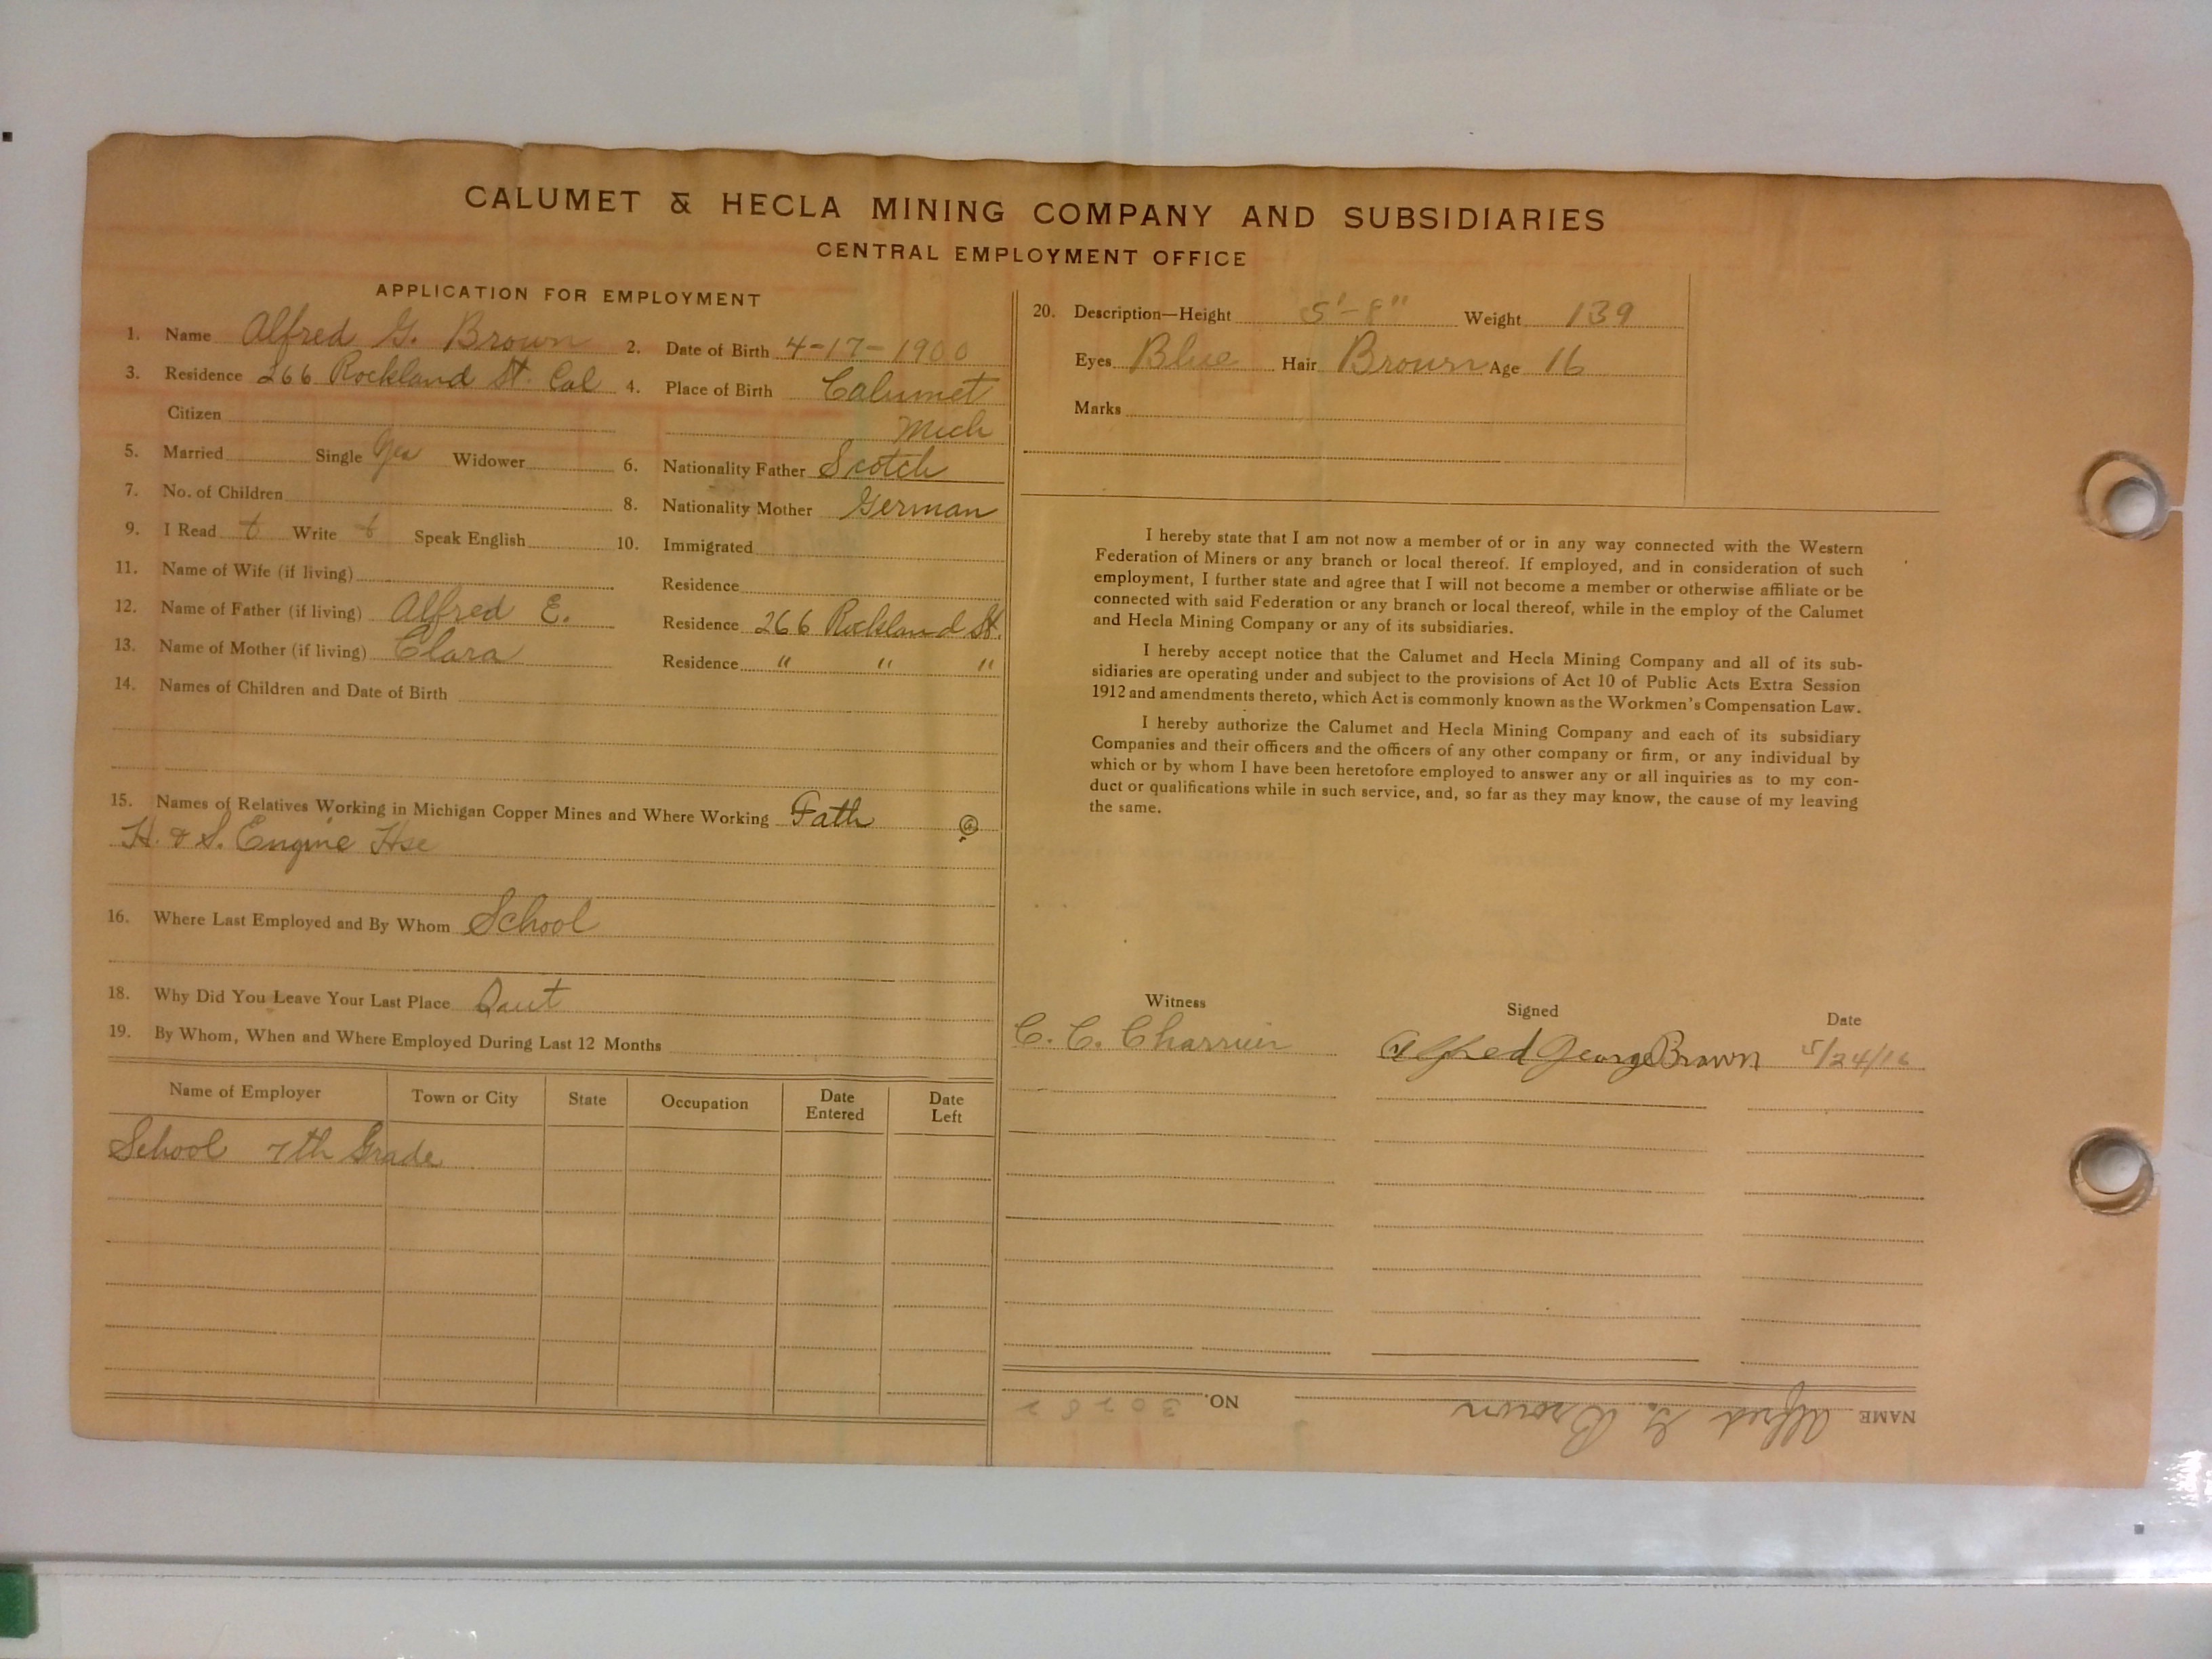 CALUMET & HECLA MINING COMPANY AND SUBSIDIARIES
CENTRAL EMPLOYMENT OFFICE
APPLICATION FOR EMPLOYMENT
1. Name Alfred G. Brown 2. Date of Birth 4-17-1900
3. Residence 266 Rockland St. Cal 4. Place of Birth Calumet
Citizen Mich
5. Married Single Yes Widower 6. Nationality Father Scotch
7. No. of Children 8. Nationality Mother German
9. I Read Write Speak English 10. Immigrated
11. Name of Wife (if living) Residence
12. Name of Father (if living) Alfred E. Residence 266 Rockland St.
13. Name of Mother (if living) Clara Residence " " "
14. Names of Children and Date of Birth
15. Names of Relatives Working in Michigan Copper Mines and Where Working Fath
H. & S. Engine Hse
16. Where Last Employed and By Whom School
18. Why Did You Leave Your Last Place
19. By Whom, When and Where Employed During Last 12 Months
Name of Employer Town or City State Occupation Date Entered Date Left
School 7th Grade
20. Description—Height 5'-8" Weight 139
Eyes Blue Hair Brown Age 16
Marks
I hereby state that I am not now a member of or in any way connected with the Western
Federation of Miners or any branch or local thereof. If employed, and in consideration of such
employment, I further state and agree that I will not become a member or otherwise affiliate or be
connected with said Federation or any branch or local thereof, while in the employ of the Calumet
and Hecla Mining Company or any of its subsidiaries.
I hereby accept notice that the Calumet and Hecla Mining Company and all of its sub-
sidiaries are operating under and subject to the provisions of Act 10 of Public Acts Extra Session
1912 and amendments thereto, which Act is commonly known as the Workmen's Compensation Law.
I hereby authorize the Calumet and Hecla Mining Company and each of its subsidiary
Companies and their officers and the officers of any other company or firm, or any individual by
which or by whom I have been heretofore employed to answer any or all inquiries as to my con-
duct or qualifications while in such service, and, so far as they may know, the cause of my leaving
the same.
Witness Signed Date
C. C. Alfred George Brown 5/24/16
NAME Alfred G. Brown NO.